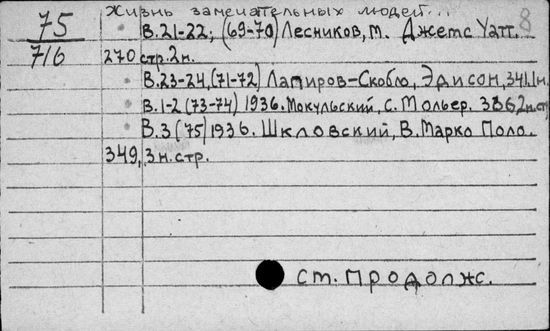 75 Жизнь замечательных людей...
716 В.21-22, (69-70) Лесников, М. Джемс Уатт. 8
270 стр. 2н.
В.23-24, (71-72) Лапиров-Скобло, Эдисон, 341,1н.
В.1-2 (73-74) 1936. Мокульский, С. Мольер. 386 2н.ст
В.3 (75) 1936. Шкловский, В. Марко Поло.
349, 3н.стр.
ст. продолж.